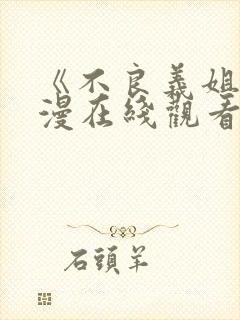 《不良義姐
漫在綫觀看
石頭羊